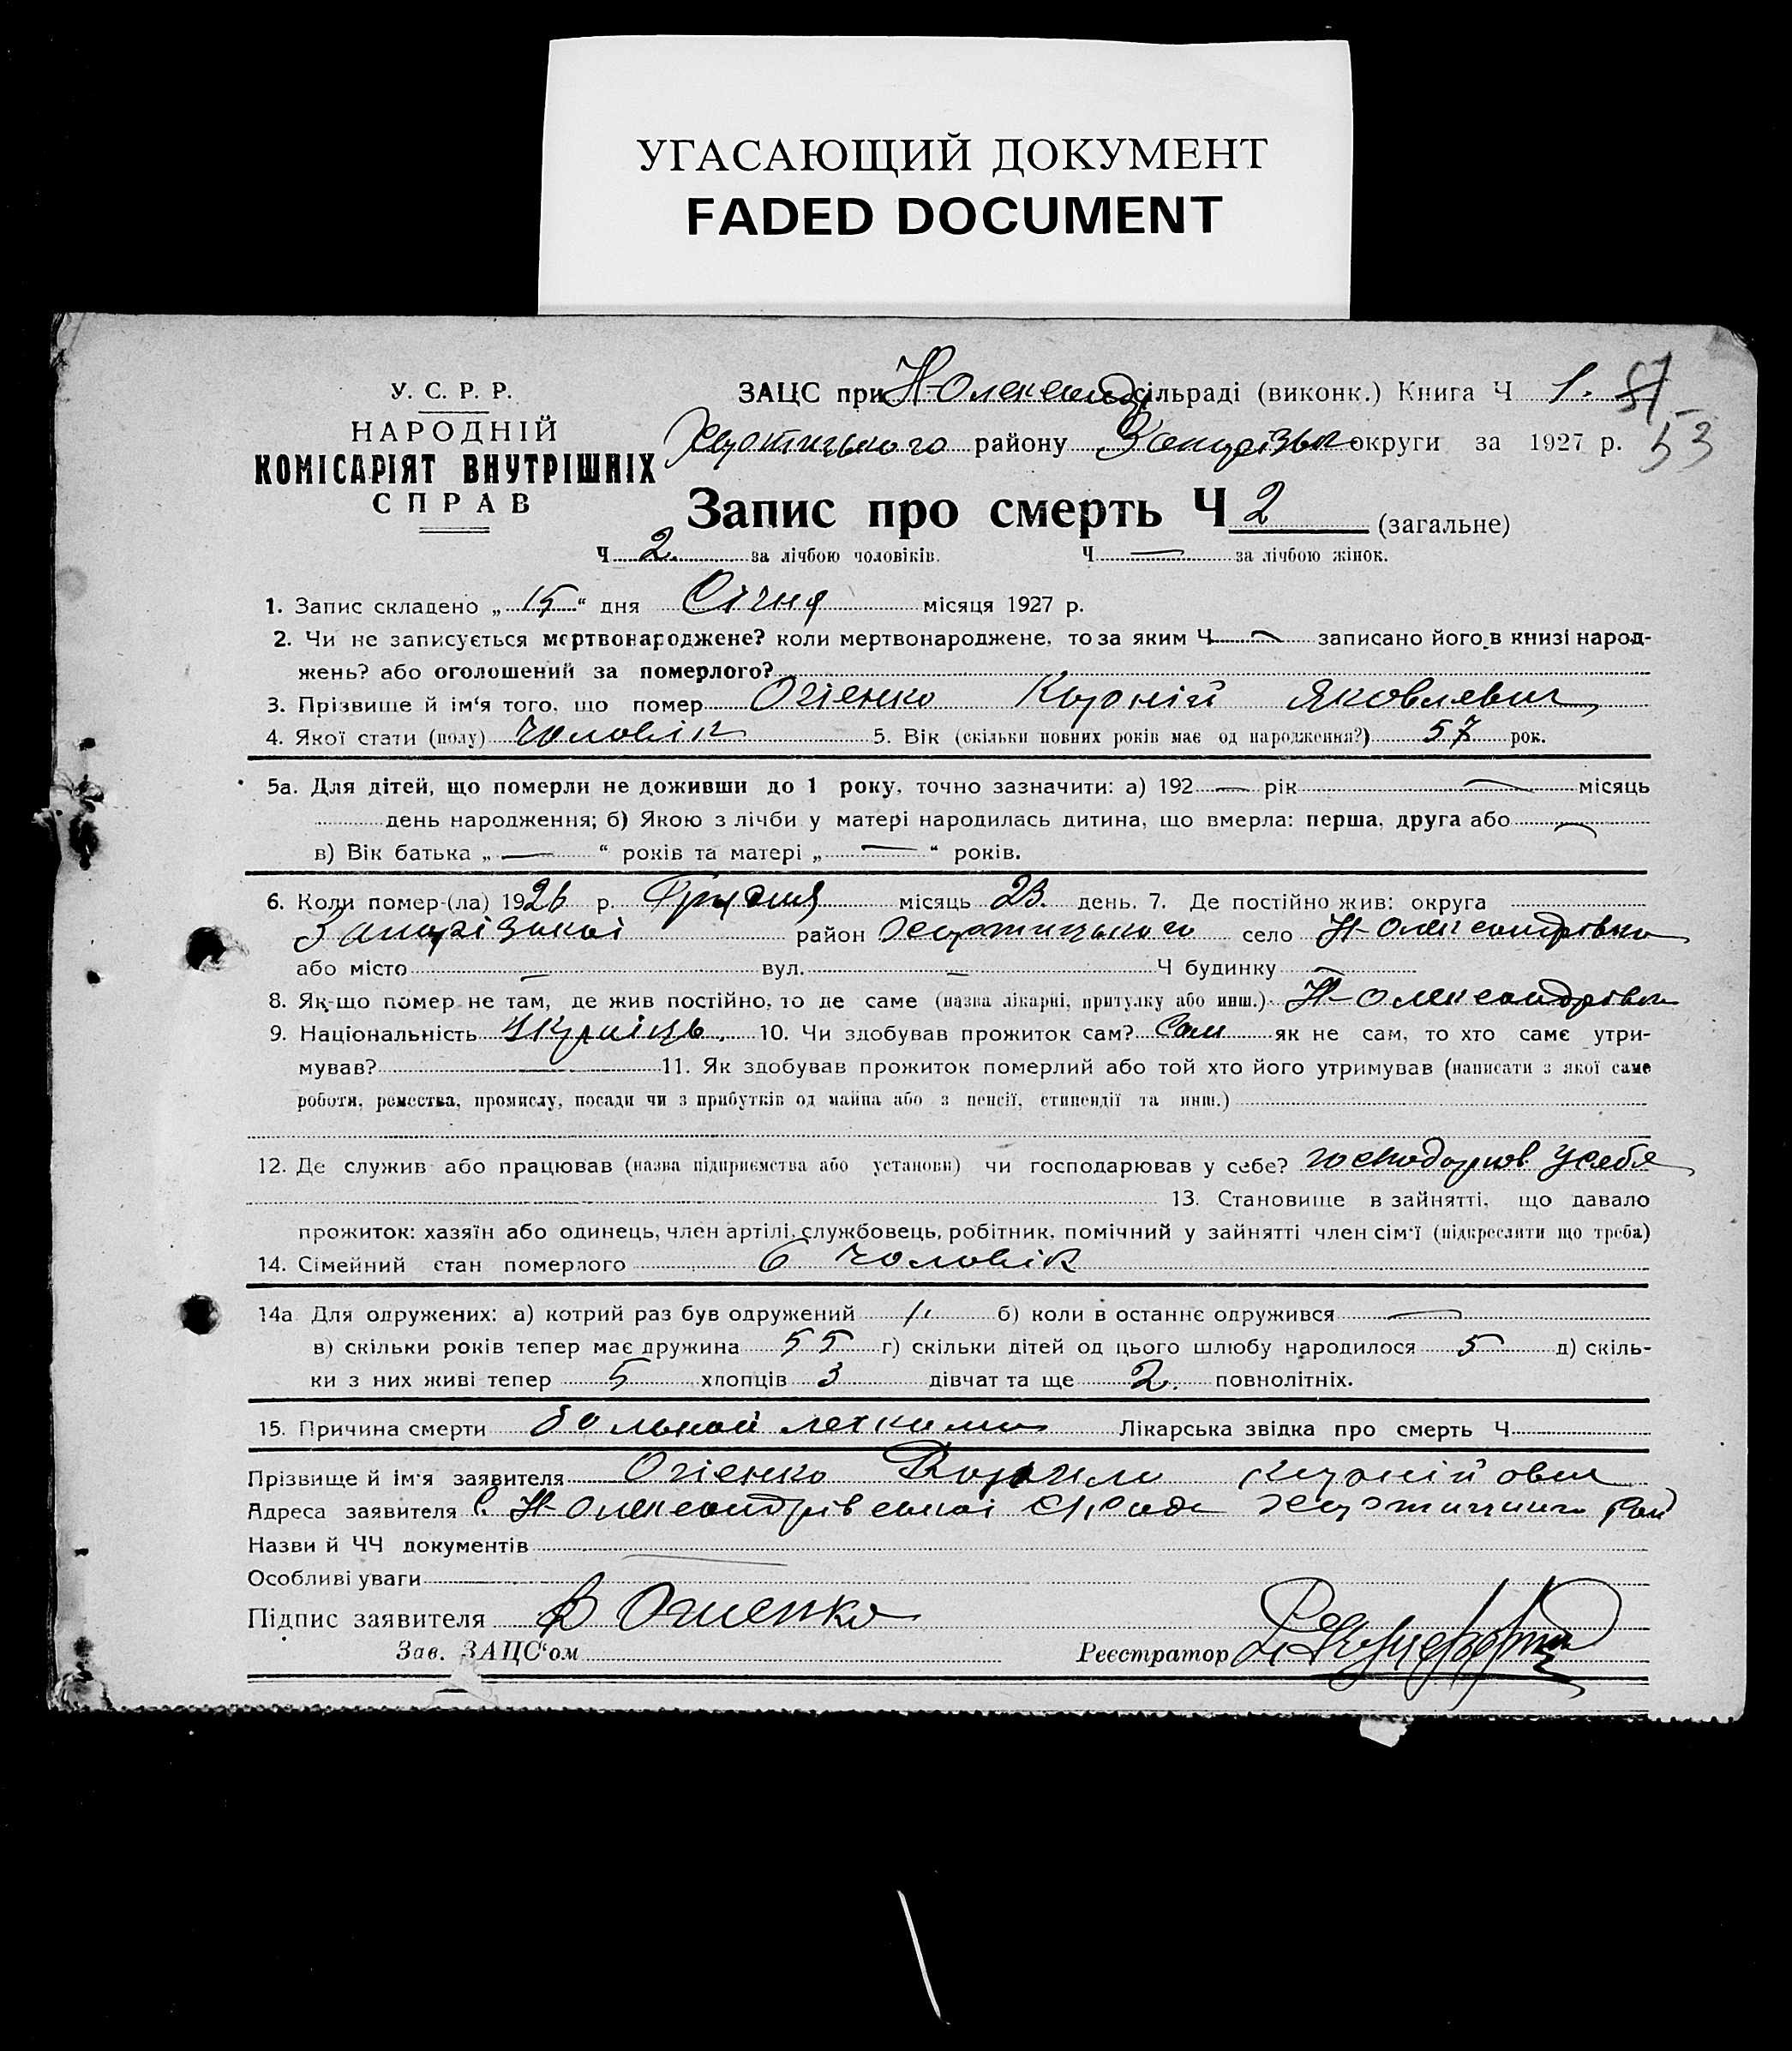 УГАСАЮЩИЙ ДОКУМЕНТ
FADED DOCUMENT
У. С. Р. Р.
НАРОДНІЙ
КОМІСАРІЯТ ВНУТРІШНІХ
СПРАВ
ЗАЦС при Н-Олександр сільраді (виконк.) Книга Ч 1. 
53
Хортицького району Запорізьк округи за 1927 р.
Запис про смерть Ч 2 (загальне)
Ч 2. за лічбою чоловіків. Ч — за лічбою жінок.
1. Запис складено „ 15 “ дня Січня місяця 1927 р.
2. Чи не записується мертвонароджене? коли мертвонароджене, то за яким Ч — записано його в книзі народ-
жень? або оголошений за померлого?
3. Прізвище й ім‘я того, що помер Огіенко Корній Яковлевич
4. Якої стати (полу) чоловік 5. Вік (скільки повних років має од народження?) 57 рок.
5а. Для дітей, що померли не доживши до 1 року, точно зазначити: а) 192 — рік — місяць
день народження; б) Якою з лічби у матері народилась дитина, що вмерла: перша, друга або —
в) Вік батька „ — “ років та матері „ — “ років.
6. Коли помер-(ла) 1926 р. Грудня місяць 23. день. 7. Де постійно жив: округа
Запорізькоі район Хортицького село Н-Олександрівка
або місто — вул. — Ч будинку —
8. Як-що помер не там, де жив постійно, то де саме (назва лікарні, притулку або инш.) Н-Олександрівка
9. Національність Украінць. 10. Чи здобував прожиток сам? Сам як не сам, то хто саме утри-
мував? — 11. Як здобував прожиток померлий або той хто його утримував (написати з якої саме
роботи, ремества, промислу, посади чи з прибутків од майна або з пенсії, стипендії та инш.)
12. Де служив або працював (назва підприємства або установи) чи господарював у себе? господарюв. у себе
13. Становище в зайнятті, що давало
прожиток: хазяїн або одинець, член артілі, службовець, робітник, помічний у зайнятті член сім‘ї (підкреслити що треба)
14. Сімейний стан померлого 6 чоловік
14а Для одружених: а) котрий раз був одружений 1. б) коли в останнє одружився —
в) скільки років тепер має дружина 55 г) скільки дітей од цього шлюбу народилося 5 д) скіль-
ки з них живі тепер 5 хлопців 3 дівчат та ще 2. повнолітніх.
15. Причина смерти больной лехкими Лікарська звідка про смерть Ч
Прізвище й ім‘я заявителя Огіенко Корнійович
Адреса заявителя С. Н-Олександрівськоі С/Рада Хортицького Рай
Назви й ЧЧ документів
Особливі уваги
Підпис заявителя В Огиенко
Зав. ЗАЦС‘ом Реєстратор